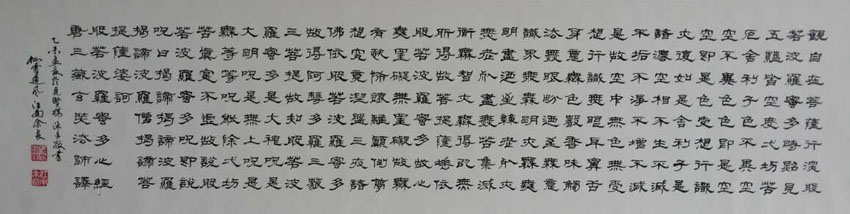 觀自在菩薩行深般
若波羅蜜多時照見
五蘊皆空度一切苦
厄舍利子色不異空
空不異色色即是空
空即是色受想行識
亦復如是舍利子是
諸法空相不生不滅
不垢不淨不增不減
是故空中無色無受
想行識無眼耳鼻舌
身意無色聲香味觸
法無眼界乃至無意
識界無無明亦無無
明盡乃至無老死亦
無老死盡無苦集滅
道無智亦無得以無
所得故菩提薩埵依
般若波羅蜜多故心
無罣礙無罣礙故無
有恐怖遠離顛倒夢
想究竟涅槃三世諸
佛依般若波羅蜜多
故得阿耨多羅三藐
三菩提故知般若波
羅蜜多是大神咒是
大明咒是無上咒是
無等等咒能除一切
苦真實不虛故說般
若波羅蜜多咒即說
咒曰揭諦揭諦波羅
揭諦波羅僧揭諦菩
提薩婆訶
般若波羅蜜多心經
唐三藏玄奘法師譯
乙未 敬書